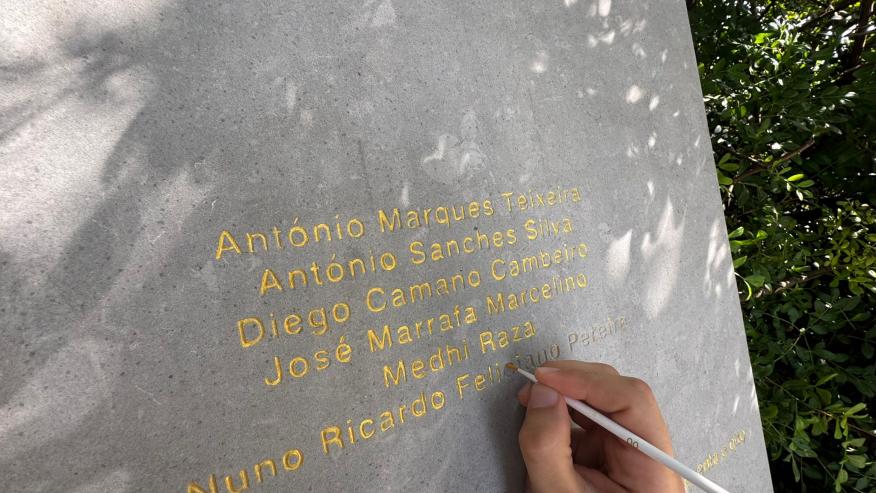 António Marques Teixeira
António Sanches Silva
Diego Camano Cambeiro
José Marrafa Marcelino
Medhi Raza
Nuno Ricardo Feliciano Pereira